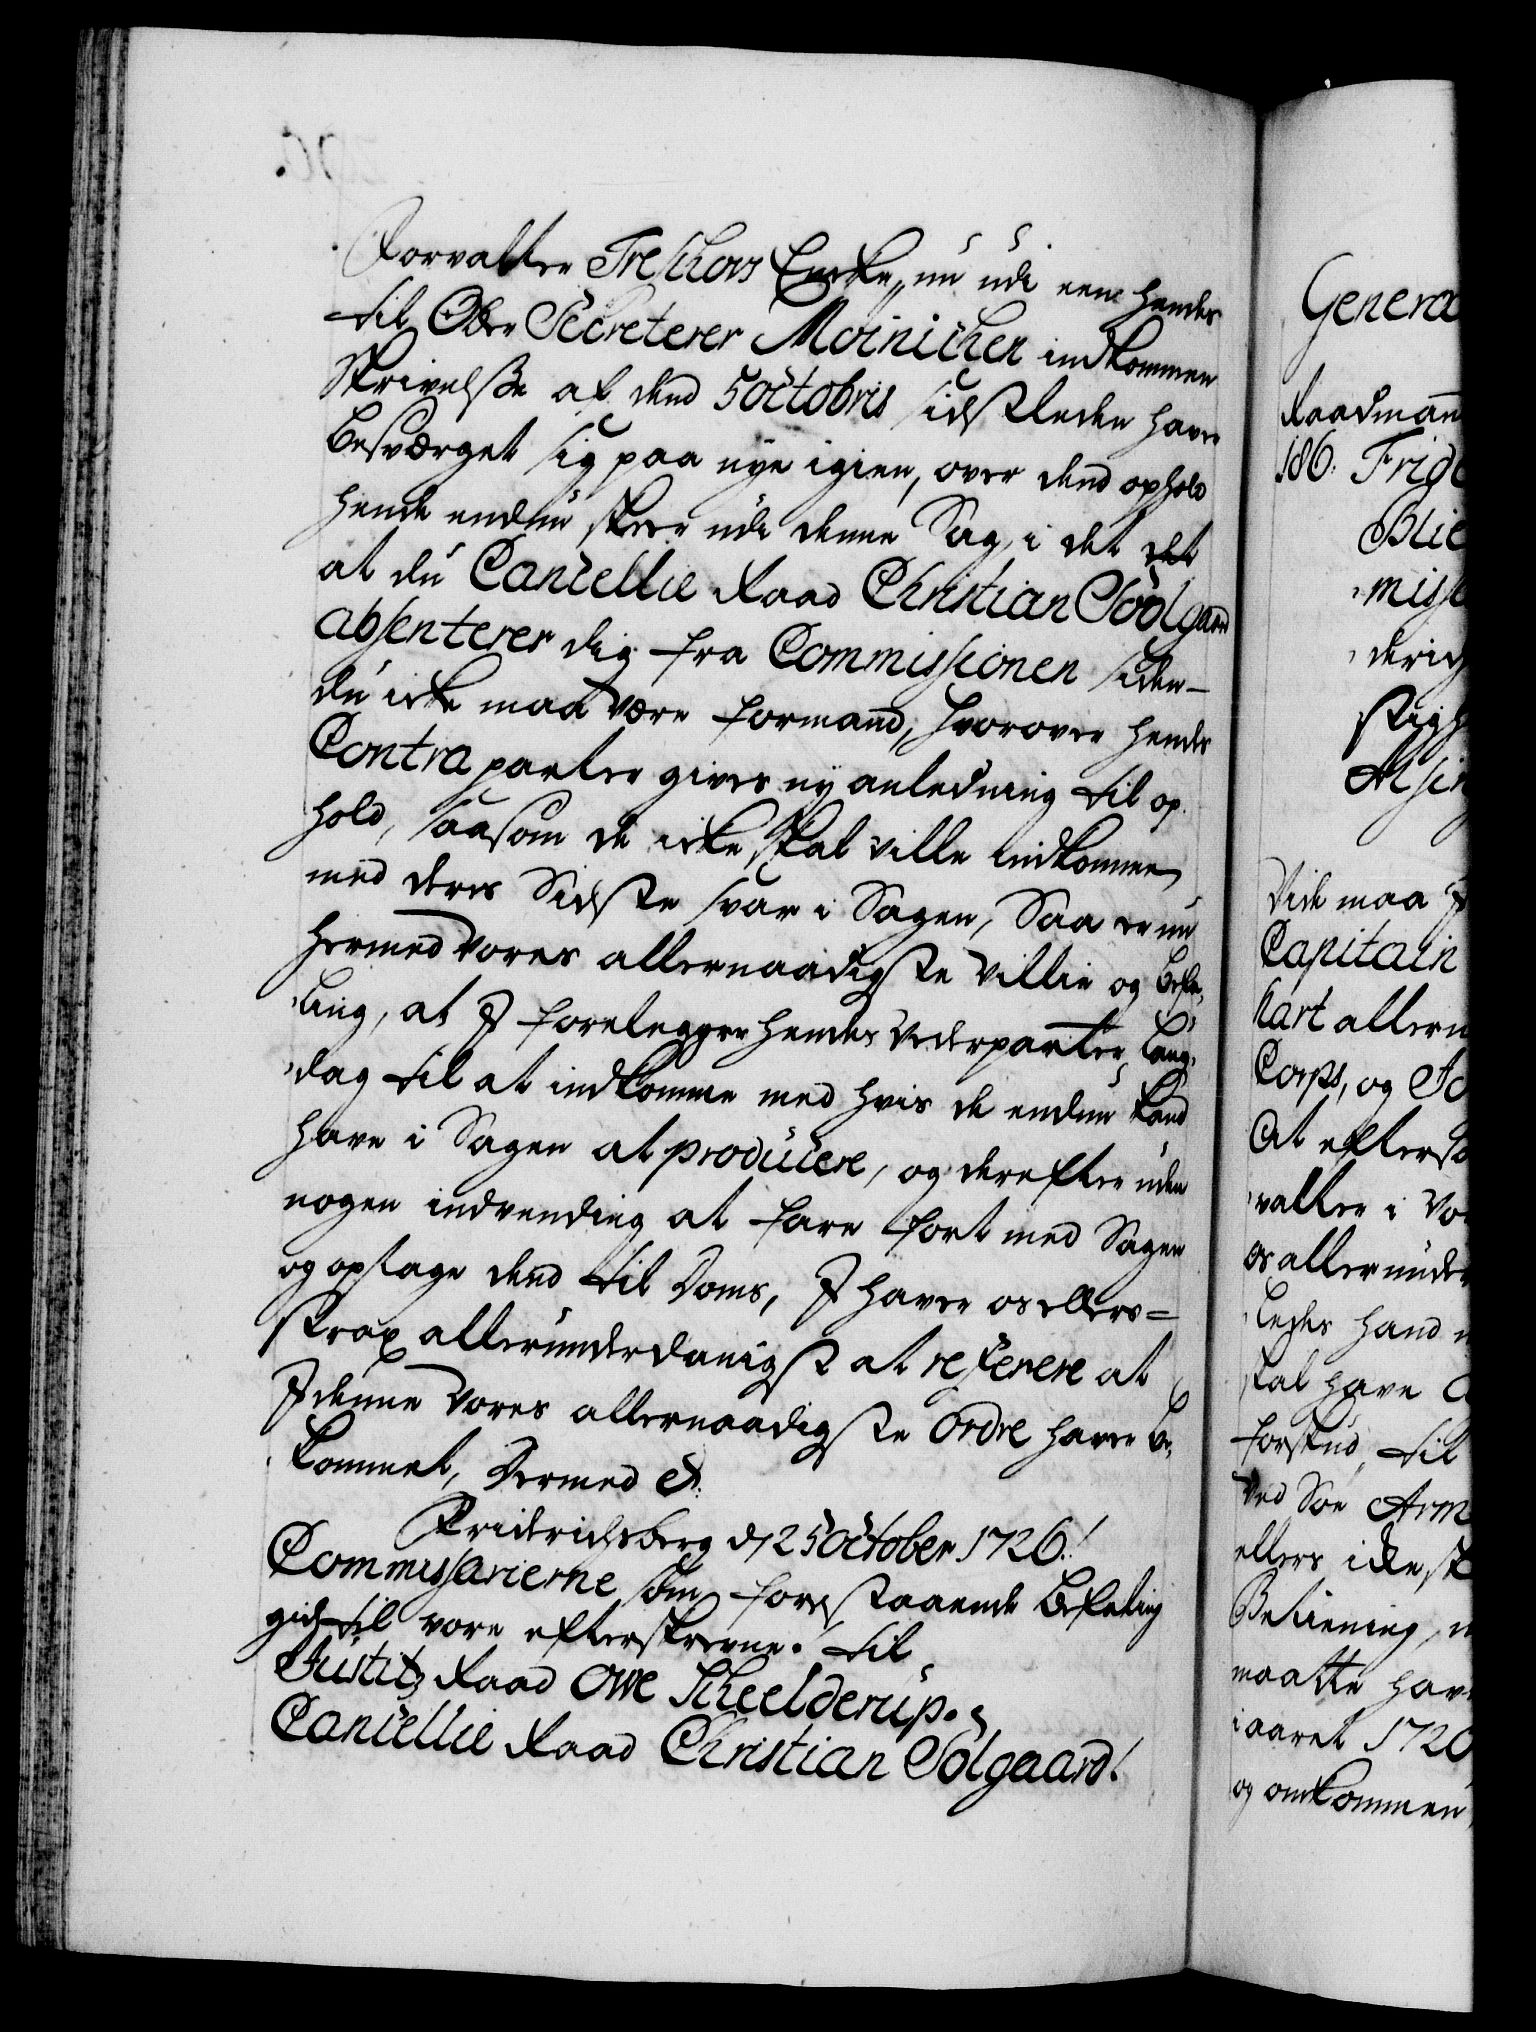 Forvalter Treschovs Encke, nu udi een hendes
til Ober Secreterer Moinichen indkommen
Skrivelsse af dend 5 octobris sidstleden haver
besværget sig paa nye igien, over dend ophold
hende endnu skeer udi denne Sag, i det det
at du Cancellie Raad Christian Söólgaard
absenterer dig fra Commissionen siden
du icke maa være formand, hvorover hendes
Contraparter gives ny anledning til op-
hold, saasom de icke skal ville indkomme
med deres Sidste svar i Sagen, Saa er nu
hermed vores allernaadigste villie og befa-
ling, at I forelegger hendes vederparter laug-
dag til at indkomme med hvis de endnu kand
have i Sagen at producere, og derefter uden
nogen indvending at fare fort med Sagen
og optage dend til Doms, I haver os ellers
strax allerunderdanigst at referere at
I denne Vores allernaadigste Ordre haver be-
kommet, Dermed &.
Friderichsberg d. 25 October 1726.
Commissarierne som forestaaende befaling
gik til vare efterskrevne. til
Justitz Raad Owe Scheelderup. &
Cancellie Raad Christian Solgaard.
Genera
Raadmann
186. Frid
Blic
misse
derich
Vide maa
Capitain
hart allern
Corps, og
At eftersom
valter i Vor
os allerunder
ledes hand
skal have
forskud, til
ved Søe Arm
ellers icke
Betiening,
maatte hav
i aaret 1720
og omkommen